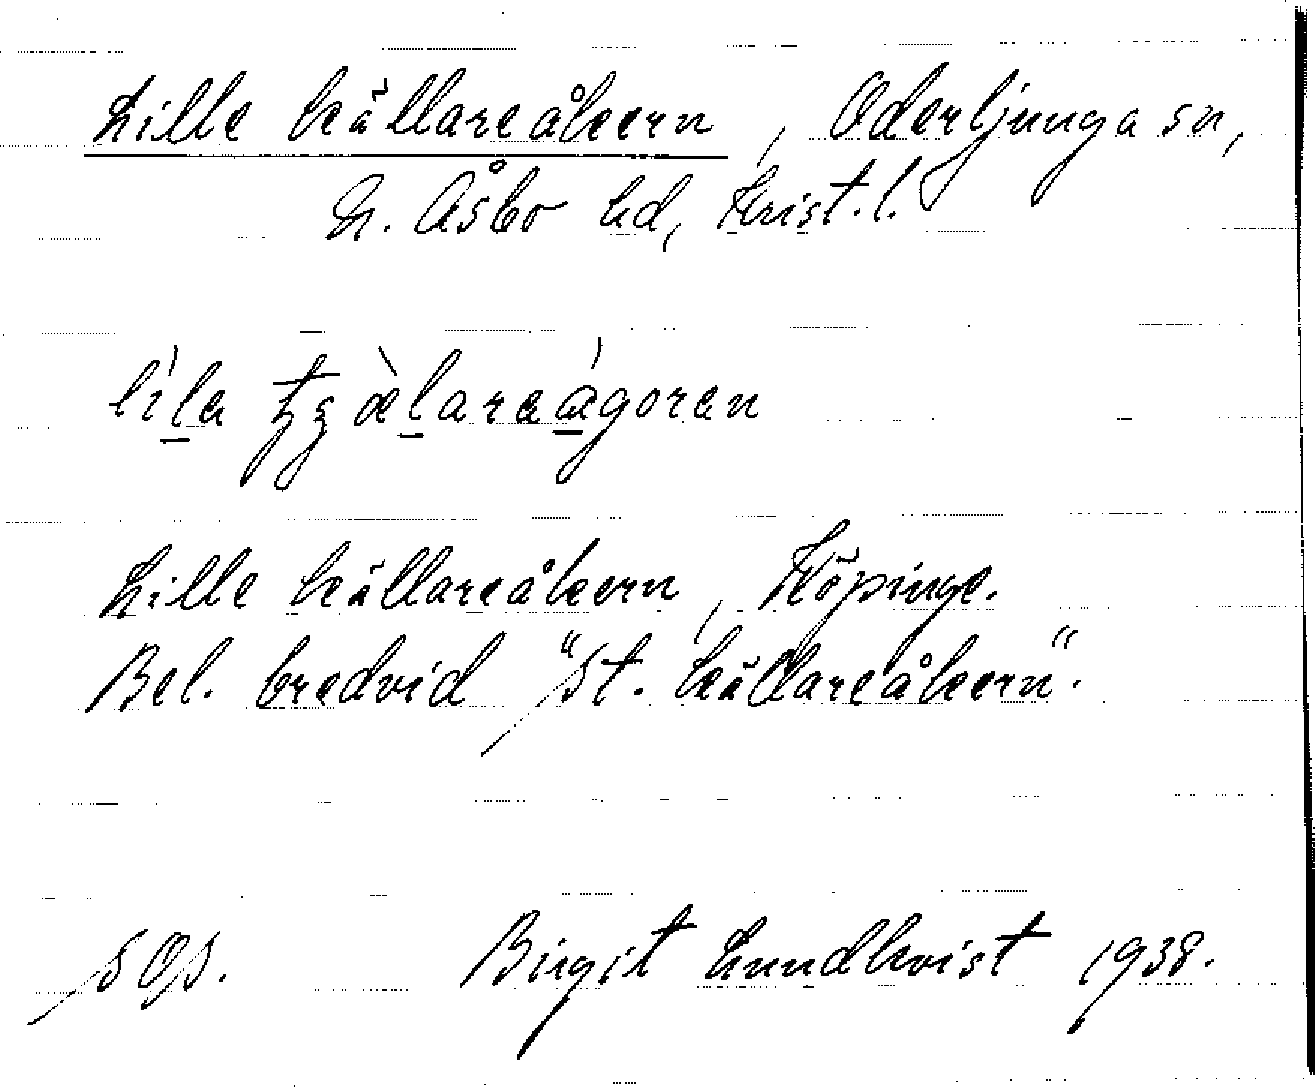 Lille källareåkern, Oderljunga sn,
N. Åsbo hd, Krist. l.
lila
Lille källareåkern, Köpinge.
Bel. bredvid "St. källareåkern".
Birgit Lundkvist 1938.